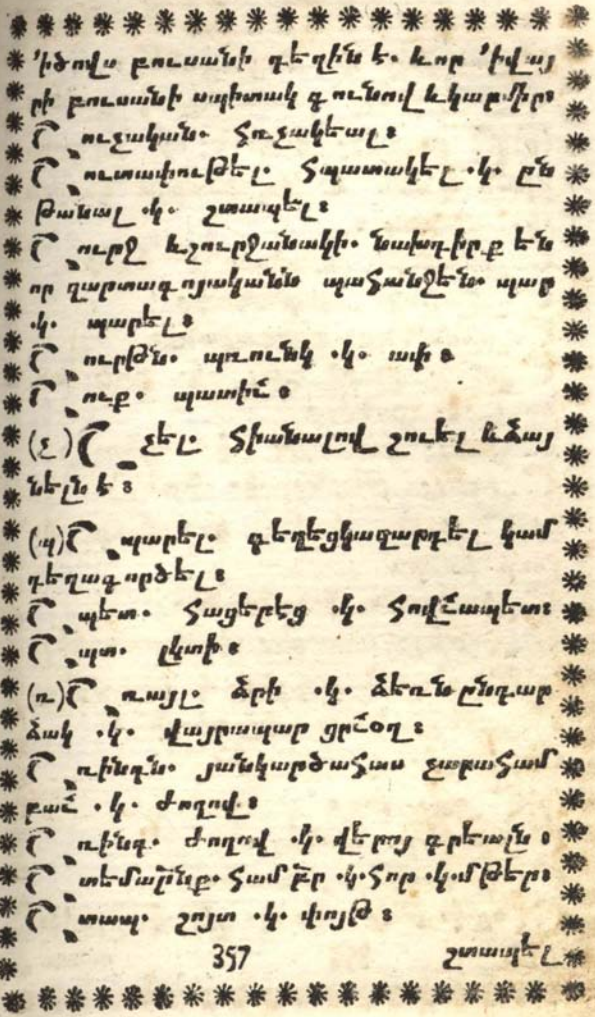 ՚իծովս բուսանի գեղին է. և որ ՚իվայ
րի բուսանի սպիտակ գունով և կարմիր։
Շուչական. հռչակեալ։
Շուտափութել. հպատակել .կ. ըն
թանալ .կ. շտապել։
Շուրջ և շուրջանակի. նախդիրք են
որ զարտագոյականն պահանջեն. պար
.կ. պարել։
Շուրթն. պռունկ .կ. ափ։
Շուք. պատիւ։
(չ)Շչել. հիանալով շուել և ձայ
նելն է։
(պ)Շպարել. գեղեցկազարդել կամ
դեղագործել։
Շպետ. հացերէց .կ. հովւապետ։
Շպտ. լկտի։
(ռ)Շռայլ. ձրի .կ. ձեռնընդար
ձակ .կ. վայրապար ցրւօղ։
Շռինդն. յանկարծահաս չարահամ
բաւ .կ. ժողով։
Շռինգ. ժողով .կ. վերոյ գրեալն։
Շտեմարանք. համբար .կ. հոր .կ. մթեր։
Շտապ. շոյտ .կ. փոյթ։
357 շտապել